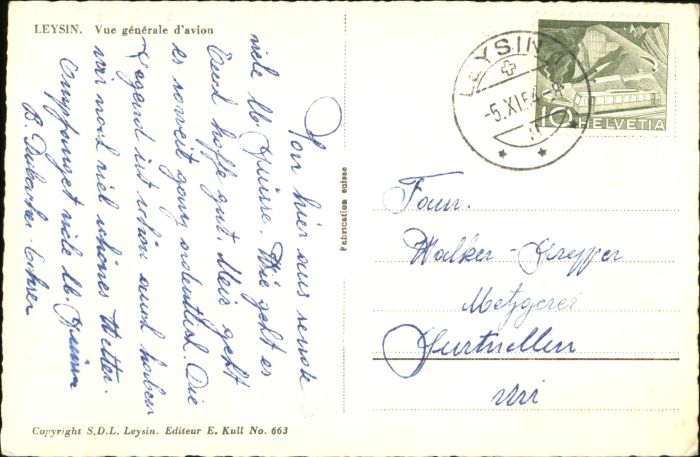 LEYSIN. Vue générale d'avion
Von hier aus sende
viele lb. Grüsse. Wie geht es
Euch hoffe gut. Mir geht
es soweit ganz ordentlich. Die
Gegend ist schön auch haben
wir noch viel schönes Wetter.
Empfanget viele lb. Grüsse
B.
Copyright S.D.L. Leysin. Editeur E. Kull No. 663
Fabrication suisse
LEYSIN
-5.XI.54-8
10 HELVETIA
Fam.
Walker-
Metzgerei
Gurtnellen
Uri